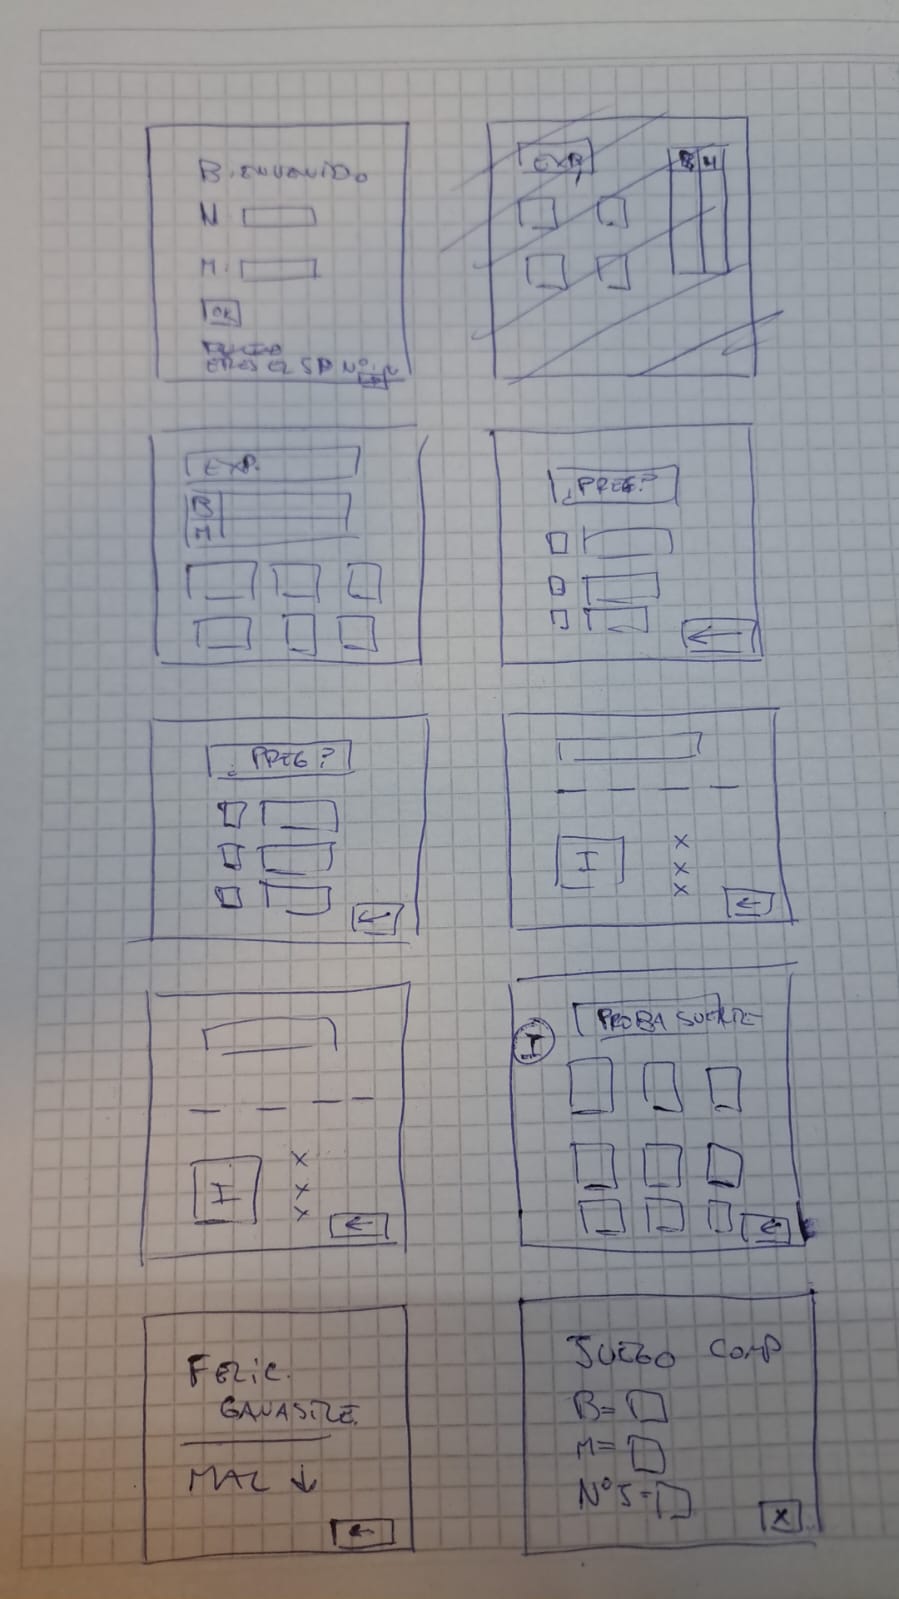 BIENVENIDO
N
M.
OK
EXP.
B M
EXP.
B
M
¿PREG?
←
¿PREG?
←
I
x
x
x
←
I
x
x
x
←
I
PROBA SUERTE
←
FELIC.
GANASTE.
MAL ↓
←
JUEGO COMP
B=
M=
Nº J=
x